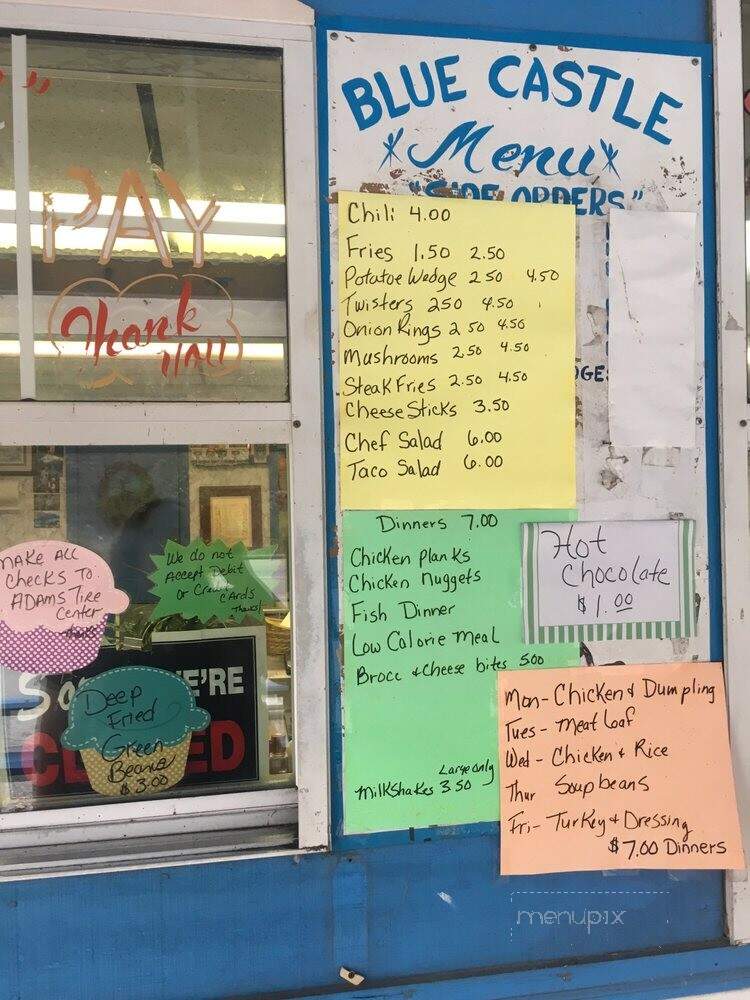 PAY
Thank
YOU
MAKE ALL
Checks To
ADAMS Tire
Center
Thanks
We do not
Accept Debit
or Credit
Cards
Thanks!
WE'RE
CLOSED
Deep
Fried
Green
Beans
$3.00
BLUE CASTLE
Menu
"SIDE ORDERS"
Chili 4.00
Fries 1.50 2.50
Potatoe Wedge 2 50 4.50
Twisters 250 4.50
Onion Rings 2 50 4.50
Mushrooms 2.50 4.50
Steak Fries 2.50 4.50
Cheese Sticks 3.50
Chef Salad 6.00
Taco Salad 6.00
GE
Dinners 7.00
Chicken planks
Chicken nuggets
Fish Dinner
Low Calorie meal
Brocc & Cheese bites 5.00
Large only
Milkshakes 3 50
Hot
Chocolate
$1.00
Mon- Chicken & Dumpling
Tues - Meat loaf
Wed - Chicken & Rice
Thur Soup beans
Fri- Turkey & Dressing
$7.00 Dinners
menupix